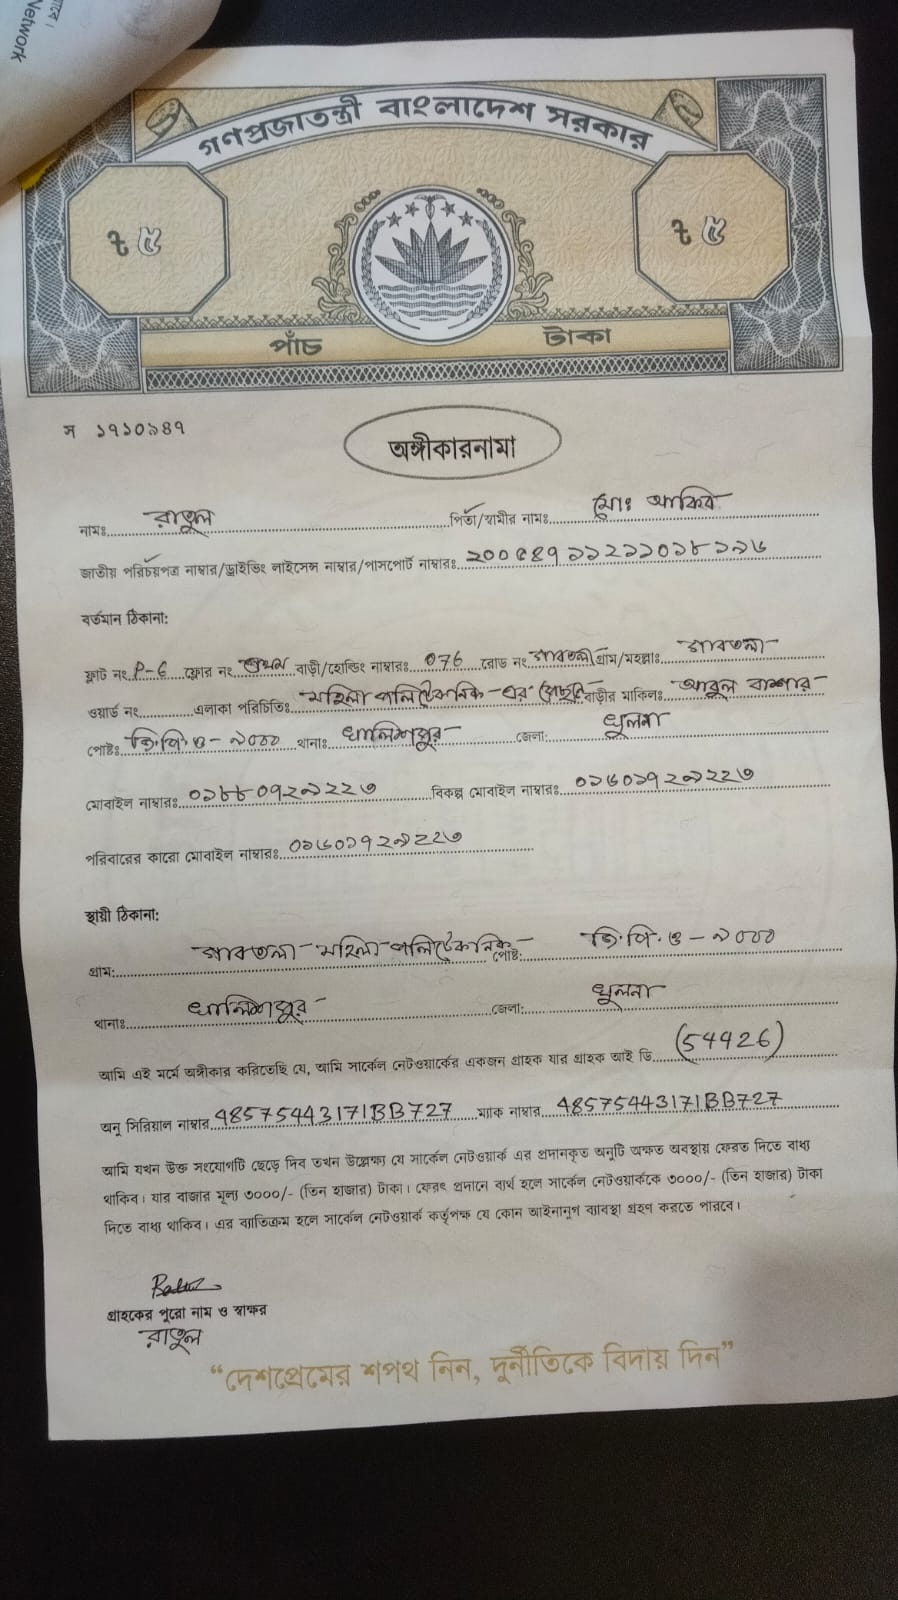 Network
গণপ্রজাতন্ত্রী বাংলাদেশ সরকার
৳ ৫ ৳ ৫
পাঁচ টাকা
স ১৭১০৯৪৭
অঙ্গীকারনামা
নামঃ রাতুল পিতা/স্বামীর নামঃ মোঃ আকিব
জাতীয় পরিচয়পত্র নাম্বার/ড্রাইভিং লাইসেন্স নাম্বার/পাসপোর্ট নাম্বারঃ
বর্তমান ঠিকানা:
ফ্লাট নং P-6 ফ্লোর নং প্রথম বাড়ী/হোল্ডিং নাম্বারঃ 076 রোড নং গাবতলী গ্রাম/মহল্লাঃ গাবতলা
ওয়ার্ড নং এলাকা পরিচিতিঃ মহিলা পলিটেকনিক-এর পেছনে বাড়ীর মালিকঃ আবুল বাশার
পোষ্টঃ জি.পি.ও-৯০০০ থানাঃ খালিশপুর জেলা: খুলনা
মোবাইল নাম্বারঃ ০১৮৮০৭২৯২২৩ বিকল্প মোবাইল নাম্বারঃ ০১৬০১৭২৯২২৩
পরিবারের কারো মোবাইল নাম্বারঃ ০১৬০১৭২৯২২৩
স্থায়ী ঠিকানা:
গ্রাম: গাবতলা মহিলা পলিটেকনিক পোষ্ট: জি.পি.ও-৯০০০
থানাঃ খালিশপুর জেলা: খুলনা
আমি এই মর্মে অঙ্গীকার করিতেছি যে, আমি সার্কেল নেটওয়ার্কের একজন গ্রাহক যার গ্রাহক আই ডি (54926)
অনু সিরিয়াল নাম্বার 48575443171BB727 ম্যাক নাম্বার 48575443171BB727
আমি যখন উক্ত সংযোগটি ছেড়ে দিব তখন উল্লেক্ষ্য যে সার্কেল নেটওয়ার্ক এর প্রদানকৃত অনুটি অক্ষত অবস্থায় ফেরত দিতে বাধ্য
থাকিব। যার বাজার মূল্য ৩০০০/- (তিন হাজার) টাকা। ফেরৎ প্রদানে ব্যর্থ হলে সার্কেল নেটওয়ার্ককে ৩০০০/- (তিন হাজার) টাকা
দিতে বাধ্য থাকিব। এর ব্যাতিক্রম হলে সার্কেল নেটওয়ার্ক কর্তৃপক্ষ যে কোন আইনানুগ ব্যাবস্থা গ্রহণ করতে পারবে।
গ্রাহকের পুরো নাম ও স্বাক্ষর
রাতুল
“দেশপ্রেমের শপথ নিন, দুর্নীতিকে বিদায় দিন”